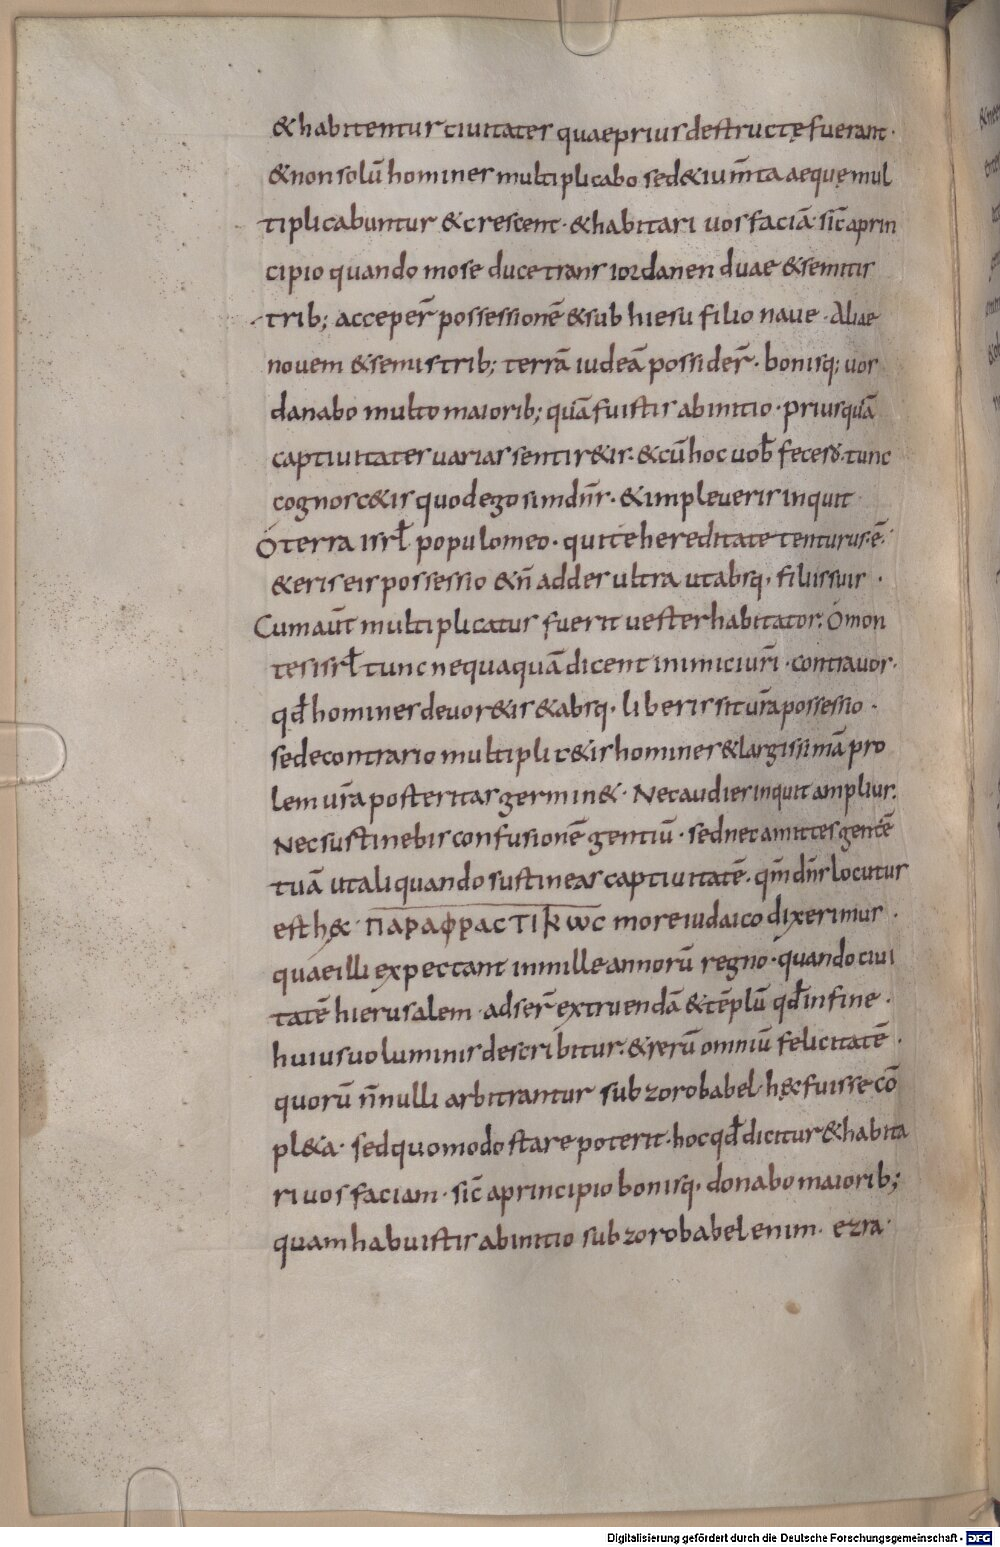 & habitentur ciuitates quae prius destructę fuerant·
& non solū homines multiplicabo sed & ium̄ta aeque mul
tiplicabuntur & crescent· & habitari uos faciā· sic̄ a prin
cipio quando mose duce trans iordanen duae & semitis
trib; acceper̄ possessionē & sub hiesu filio naue· Aliae
nouem & semis trib; terrā iudeā possider̄· bonisq; uos
danabo multo maiorib; quā fuistis ab initio· priusquā
captiuitates uarias sentir&is· & cū hoc uob̄ fecero· tunc
cognosc&is quod ego sim dn̄s· & impleueris inquit
O terra isrł populo meo· qui te hereditate tenturus ē·
& eris eis possessio & n̄ addes ultra ut absq, filiis suis·
Cum aūt multiplicatus fuerit uester habitator· O mon
tes isrł tunc nequaquā dicent inimici ur̄i· contra uos·
qd̄ homines deuor&is & absq, liberis sit ur̄a possessio·
sed e contrario multiplic&is homines & largissimā pro
lem ur̄a posteritas germin&· Nec audies inquit amplius·
Nec sustinebis confusionē gentiū· sed nec amittes gentē
tuā ut aliquando sustineas captiuitatē· qm̄ dn̄s locutus
est hęc· ΠΑΡΑΦΡΑCΤΙΚWC more iudaico dixerimus·
quae illi expectant in mille annorū regno· quando ciui
tatē hierusalem· adser̄ extruendā & tēplū qd̄ in fine·
huius uoluminis describitur· & rerū omniū felicitatē·
quorū n̄nulli arbitrantur sub zorobabel· hęc fuisse cō
pl&a· sed quomodo stare poterit· hoc qd̄ dicitur & habita
ri uos faciam· sic̄ a principio bonisq, donabo maiorib;
quam habuistis ab initio sub zorobabel enim· ezra·
Digitalisierung gefördert durch die Deutsche Forschungsgemeinschaft - DFG